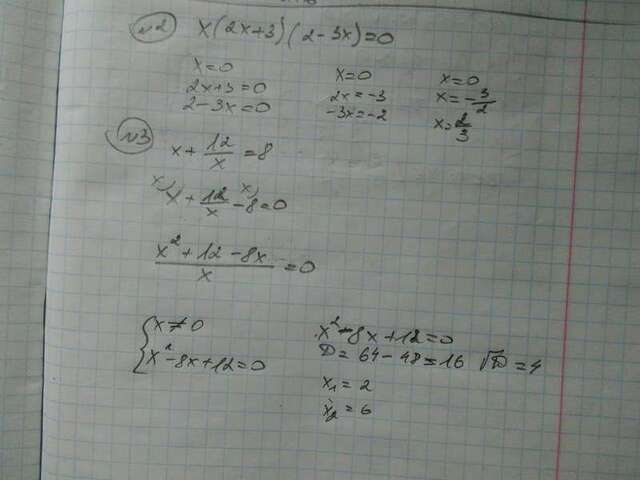 №2 x(2x+3)(2-3x)=0
x=0 x=0 x=0
2x+3=0 2x=-3 x=-3/2
2-3x=0 -3x=-2 x=2/3
№3
x+12/x=8
x) x) 
x+12/x-8=0
(x²+12-8x)/x=0
{x≠0 x²-8x+12=0
x²-8x+12=0 D=64-48=16 √D=4
x₁=2
x₂=6